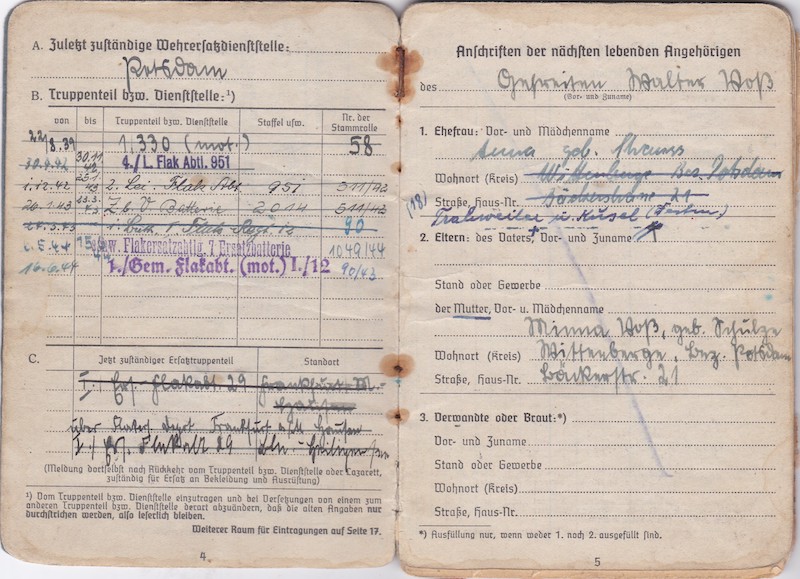 A. Zuletzt zuständige Wehrersatzdienststelle:
Potsdam
B. Truppenteil bzw. Dienststelle:¹)
von bis Truppenteil bzw. Dienststelle Staffel usw. Nr. der Stammrolle
22.8.39 1. 330 (mot.) 58
30.11. 42 4./L. Flak Abtl. 951
1.12.42 25.1. 43 2. Lei. Flak Abt. 951 511/42
26.1.43 23.3. 43 Z.b.V. Batterie 2014 511/42
80
Flakersatzabtlg. 7 Ersatzbatterie 1049/44
16.6.44 1./Gem. Flakabt. (mot.) I./12 90/43
C. Jetzt zuständiger Ersatztruppenteil Standort
Ers. Flakabt 29 Frankfurt M.-
Hausen
über Frankfurt a/M Hausen
Ers. Flakabt 29
(Meldung dortselbst nach Rückkehr vom Truppenteil bzw. Dienststelle oder Lazarett,
zuständig für Ersatz an Bekleidung und Ausrüstung)
¹) Vom Truppenteil bzw. Dienststelle einzutragen und bei Versetzungen von einem zum
anderen Truppenteil bzw. Dienststelle derart abzuändern, daß die alten Angaben nur
durchstrichen werden, also leserlich bleiben.
Weiterer Raum für Eintragungen auf Seite 17.
4
Anschriften der nächsten lebenden Angehörigen
des Gefreiten Walter Voß
(Vor- und Zuname)
1. Ehefrau: Vor- und Mädchenname
Anna geb.
Wohnort (Kreis) Wittenberge Bez. Potsdam
Straße, Haus-Nr. Bäckerstraße 21
(18)
u. Kusel
2. Eltern: des Vaters, Vor- und Zuname
Stand oder Gewerbe
der Mutter, Vor- u. Mädchenname
Minna Voß, geb. Schulze
Wohnort (Kreis) Wittenberge, Bez. Potsdam
Straße, Haus-Nr. Bäckerstr. 21
3. Verwandte oder Braut:*)
Vor- und Zuname
Stand oder Gewerbe
Wohnort (Kreis)
Straße, Haus-Nr.
*) Ausfüllung nur, wenn weder 1. noch 2. ausgefüllt sind.
5